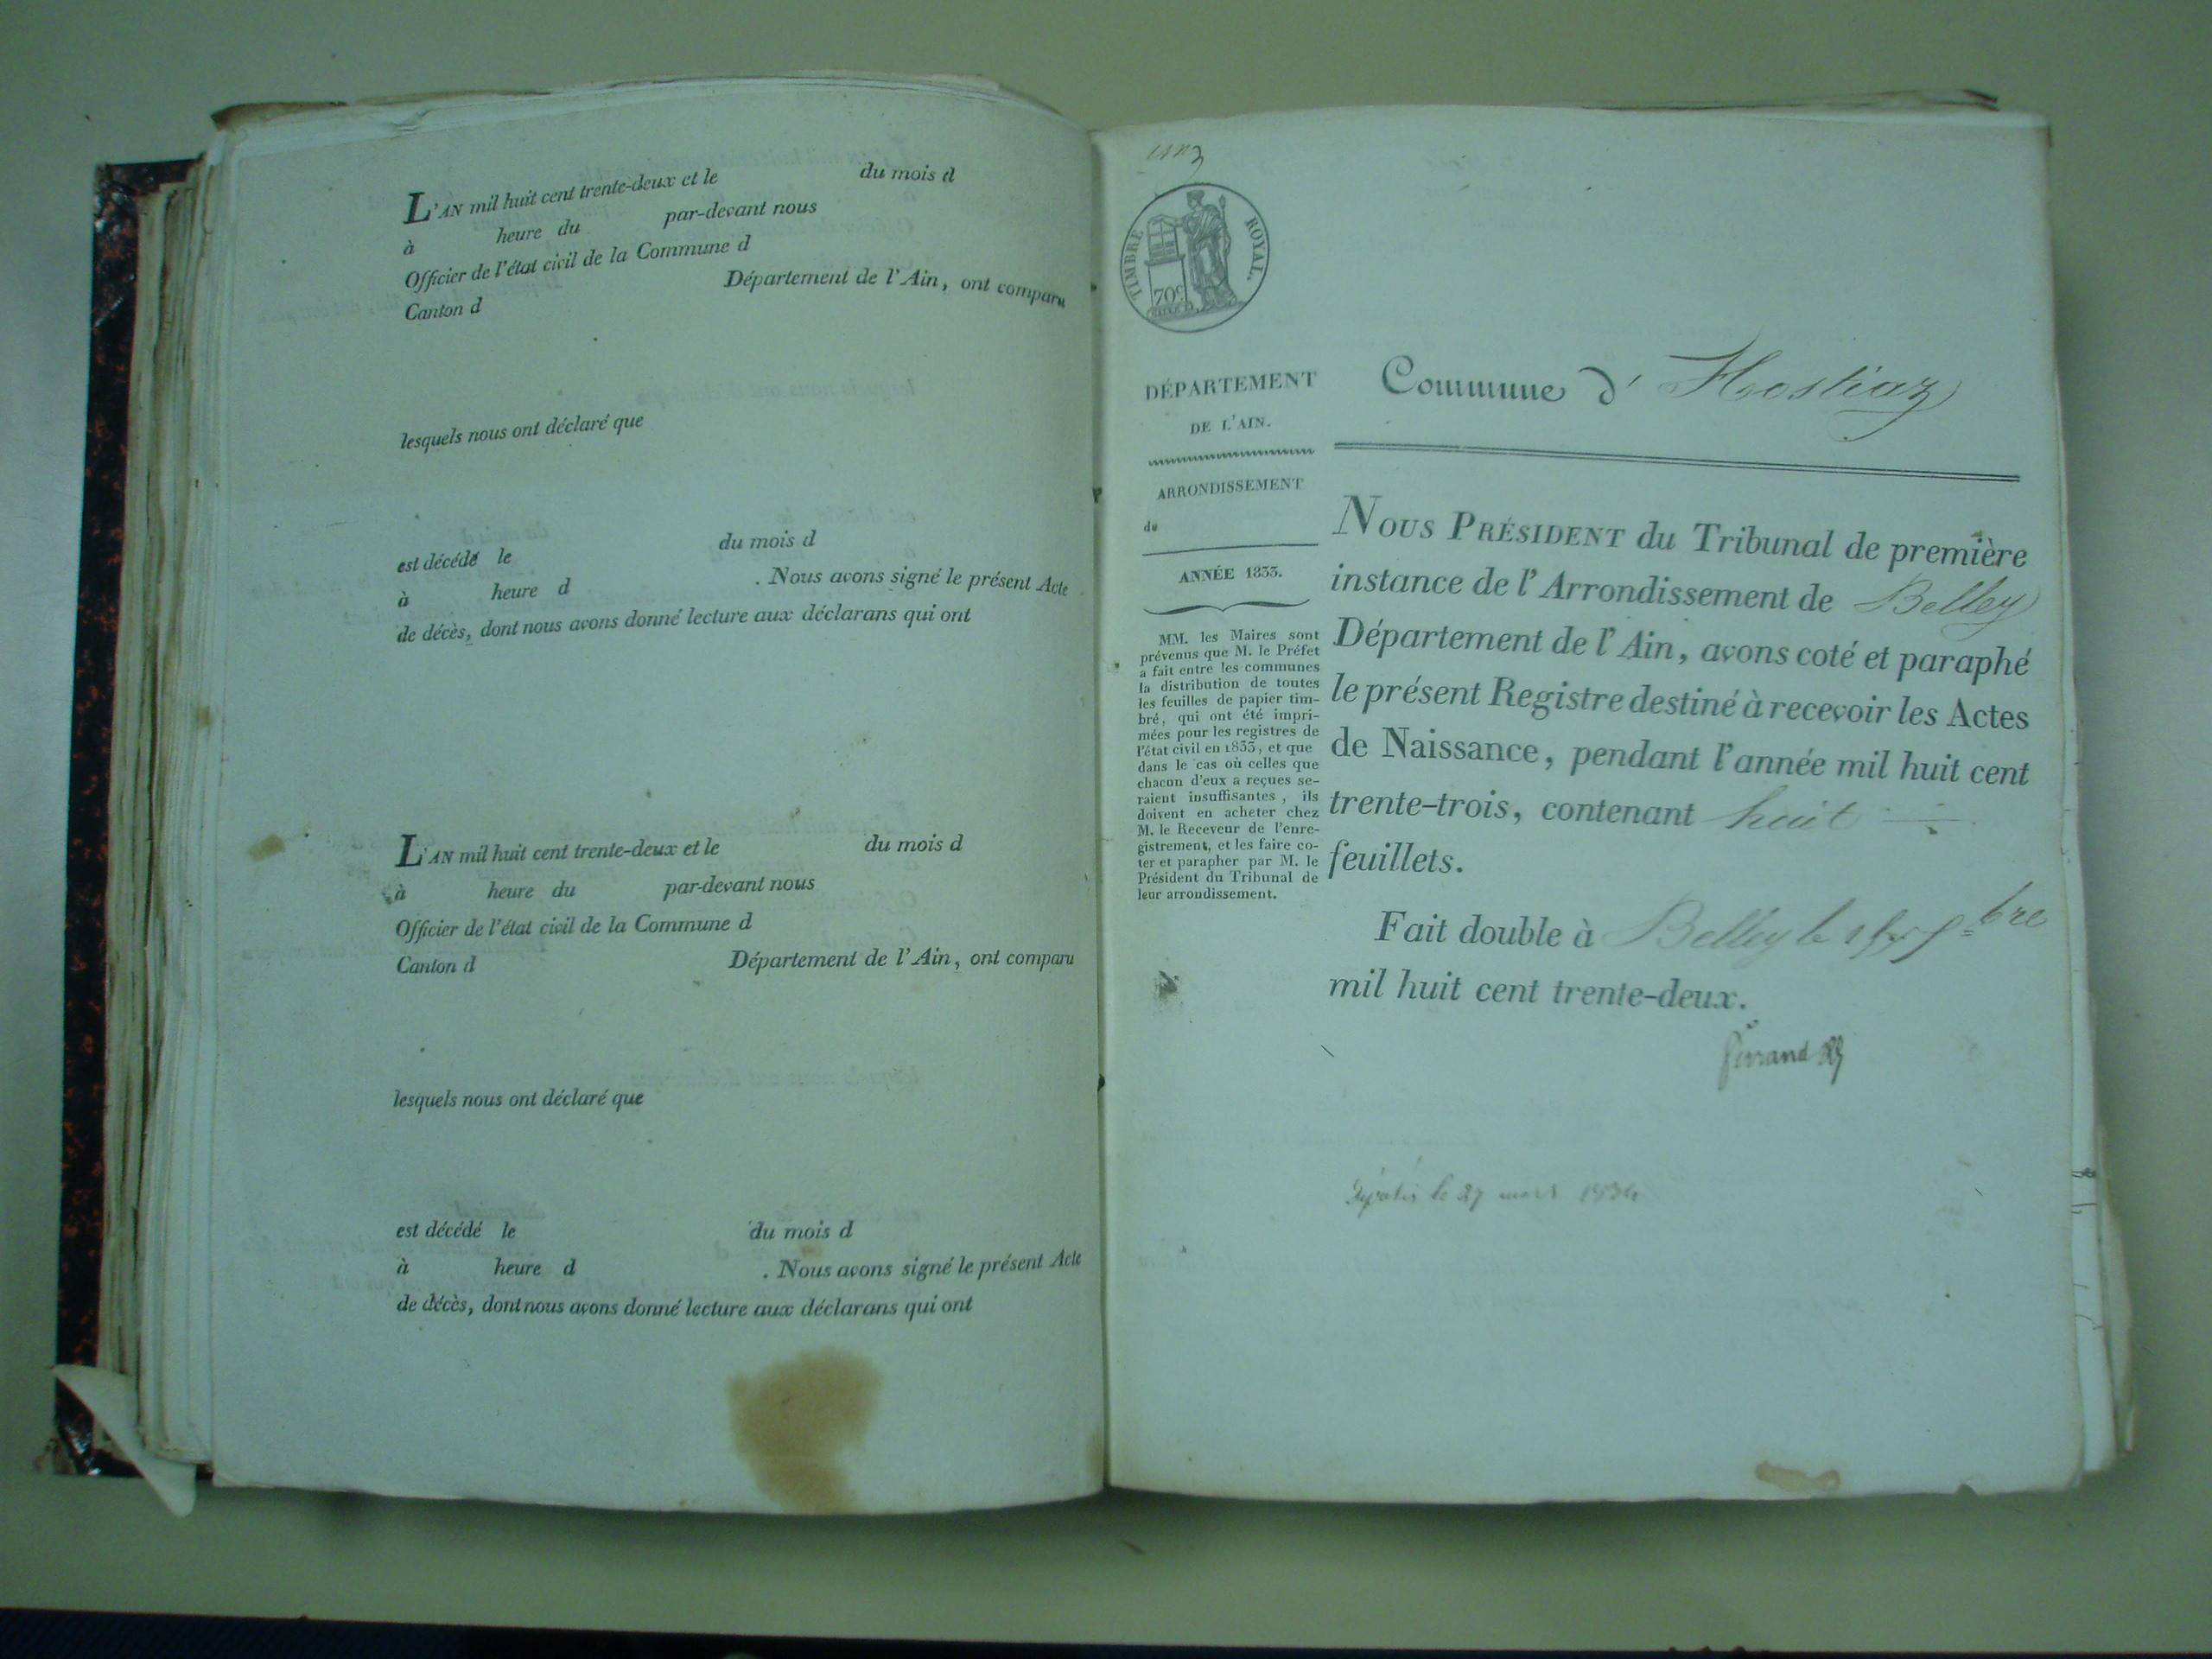 L'AN mil huit cent trente-deux et le du mois d
à heure du par-devant nous
Officier de l'état civil de la Commune d
Canton d Département de l'Ain, ont comparu
lesquels nous ont déclaré que
est décédé le du mois d
à heure d . Nous avons signé le présent Acte
de décès, dont nous avons donné lecture aux déclarans qui ont
L'AN mil huit cent trente-deux et le du mois d
à heure du par-devant nous
Officier de l'état civil de la Commune d
Canton d Département de l'Ain, ont comparu
lesquels nous ont déclaré que
est décédé le du mois d
à heure d . Nous avons signé le présent Acte
de décès, dont nous avons donné lecture aux déclarans qui ont
TIMBRE ROYAL.
70c
DÉPARTEMENT
DE L'AIN.
ARRONDISSEMENT
de
ANNÉE 1833.
MM. les Maires sont
prévenus que M. le Préfet
a fait entre les communes
la distribution de toutes
les feuilles de papier tim-
bré, qui ont été impri-
mées pour les registres de
l'état civil en 1833, et que
dans le cas où celles que
chacun d'eux a reçues se-
raient insuffisantes, ils
doivent en acheter chez
M. le Receveur de l'enre-
gistrement, et les faire co-
ter et parapher par M. le
Président du Tribunal de
leur arrondissement.
Commune d' Hostiaz
NOUS PRÉSIDENT du Tribunal de première
instance de l'Arrondissement de Belley
Département de l'Ain, avons coté et paraphé
le présent Registre destiné à recevoir les Actes
de Naissance, pendant l'année mil huit cent
trente-trois, contenant huit
feuillets.
Fait double à Belley le bre
mil huit cent trente-deux.
le 27 mars 1834